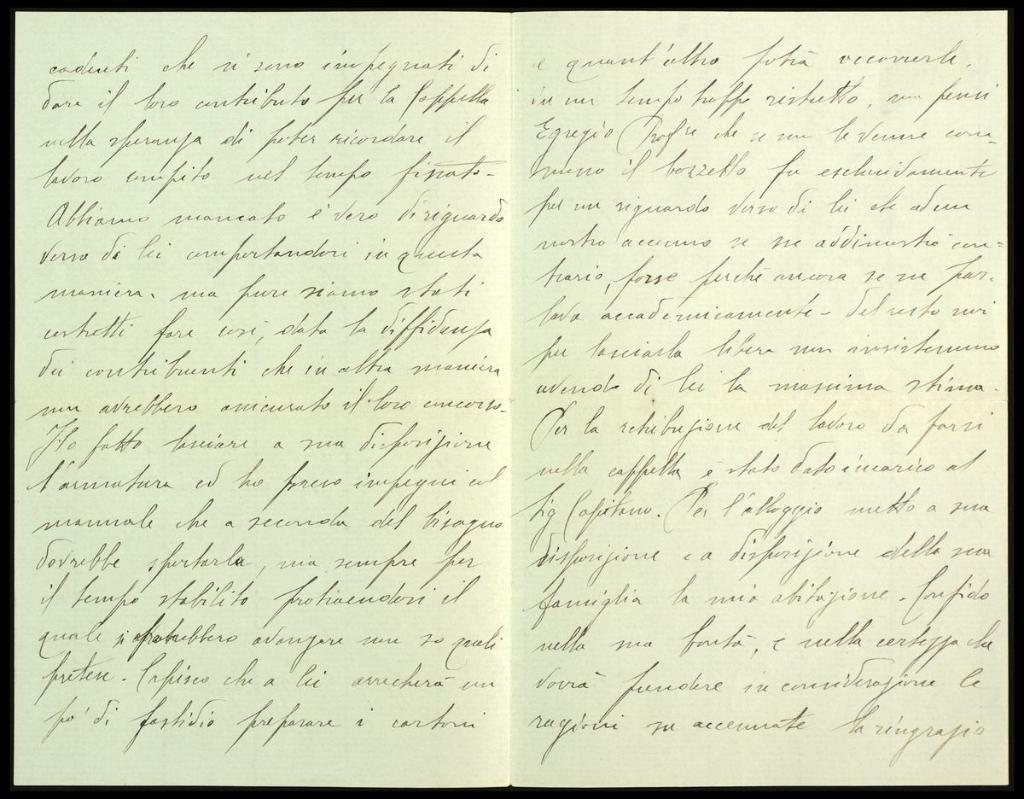 caduti che si sono impegnati di
dare il loro contributo per la Cappella
nella speranza di poter ricordare il
lavoro compito nel tempo fissato-
Abbiamo mancato è vero di riguardo
verso di lei comportandosi in questa
maniera. ma pure siamo stati
costretti fare così, data la diffidenza
dei contribuenti che in altra maniera
non avrebbero assicurato il loro concorso-
Ho fatto lasciare a sua disposizione
l'armatura ed ho preso impegni col
manuale che a seconda del bisogno
dovrebbe spostarla, ma sempre per
il tempo stabilito protraendosi il
quale si potrebbero avanzare non so quali
pretese. Capisco che a lei arrecherà un
po' di fastidio preparare i cartoni
e quant'altro potrà occorrerle,
in un tempo troppo ristretto, ma pensi
Egregio Profre che se non le venne com=
messo il bozzetto fu esclusivamente
per un riguardo verso di lei che ad un
nostro accenno se ne addimostrò con=
trario, forse perchè ancora se ne par-
lava accademicamente- Del resto noi
per lasciarla libera non insistemmo
avendo di lei la massima stima.
Per la retribuzione del lavoro da farsi
nella cappella è stato dato incarico al
Sig Capitano. Per l'alloggio metto a sua
disposizione e a disposizione della sua
famiglia la mia abitazione. Confido
nella sua bontà, e nella certezza che
vorrà prendere in considerazione le
ragioni su accennate la ringrazio